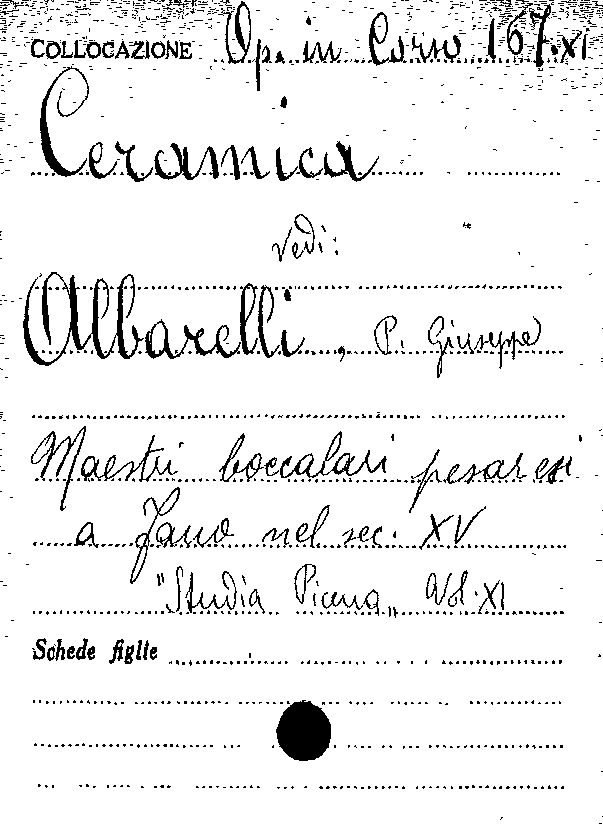 COLLOCAZIONE Op. in Corso 167.XI
Ceramica
Vedi:
Albarelli, P. Giuseppe
Maestri boccalari pesaresi
a Fano nel sec. XV
"Studia Picena" Vol. XI
Schede figlie